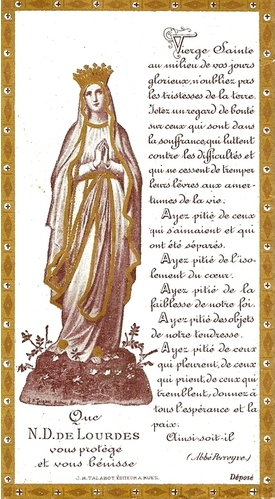 Vierge Sainte
au milieu de vos jours
glorieux, n'oubliez pas
les tristesses de la terre.
Jetez un regard de bonté
sur ceux qui sont dans
la souffrance, qui luttent
contre les difficultés et
qui ne cessent de tremper
leurs lèvres aux amer-
tumes de la vie.
Ayez pitié de ceux
qui s'aimaient et qui
ont été séparés.
Ayez pitié de l'iso-
lement du cœur.
Ayez pitié de la
faiblesse de notre foi.
Ayez pitié des objets
de notre tendresse.
Ayez pitié de ceux
qui pleurent, de ceux
qui prient, de ceux qui
tremblent, donnez à
tous l'espérance et la
paix.
Ainsi-soit-il
(Abbé Perreyve)
Que
N.D. DE LOURDES
vous protège
et vous bénisse
ÉDITEUR
Déposé